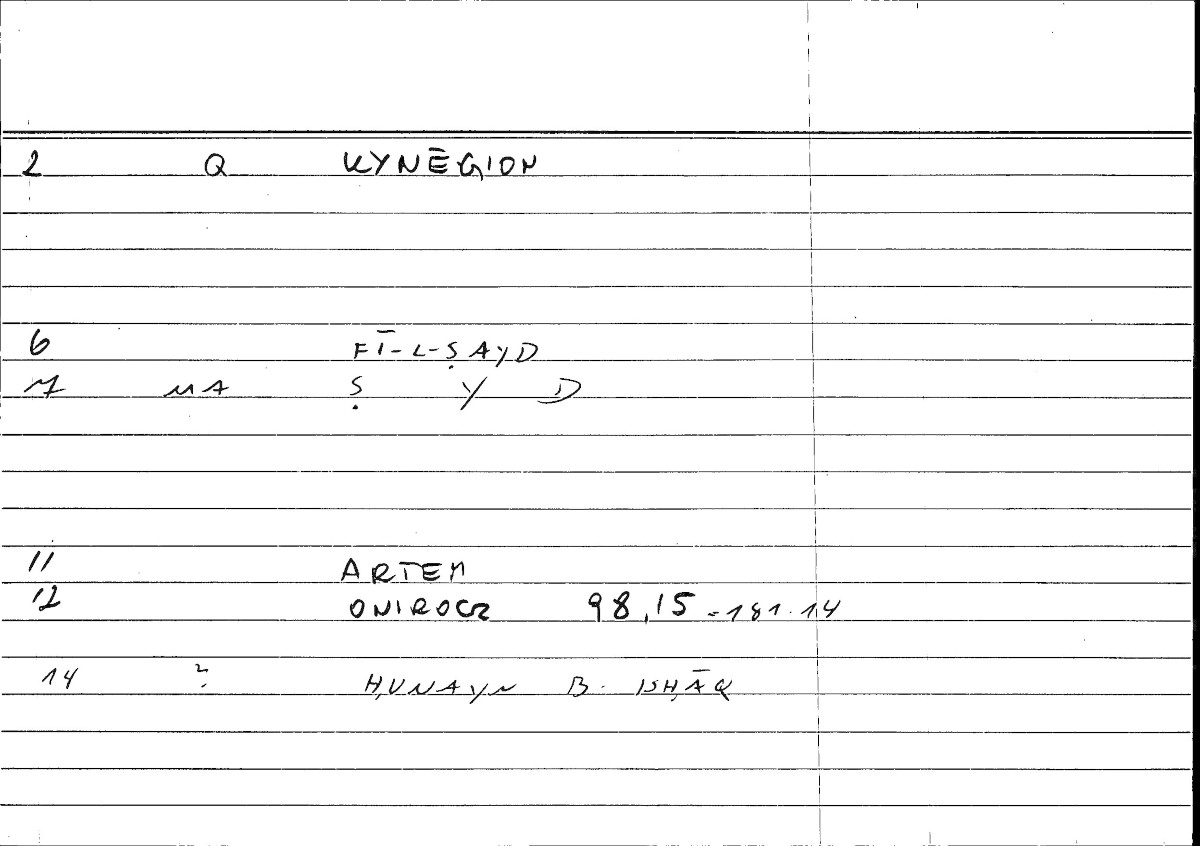 2 Q KYNĒGION
6 FĪ-L-ṢAYD
7 MA Ṣ Y D
11 ARTEM
12 ONIROCR 98,15 = 181.14
14 ? ḤUNAYN B. ISḤĀQ